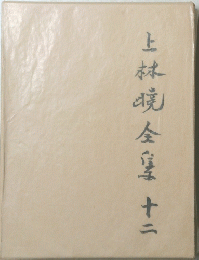 上林暁全集十二